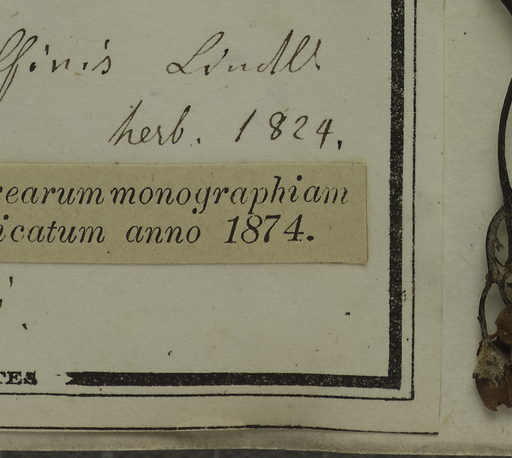 ffinis Lindl.
herb. 1824.
cearum monographiam
icatum anno 1874.
TES